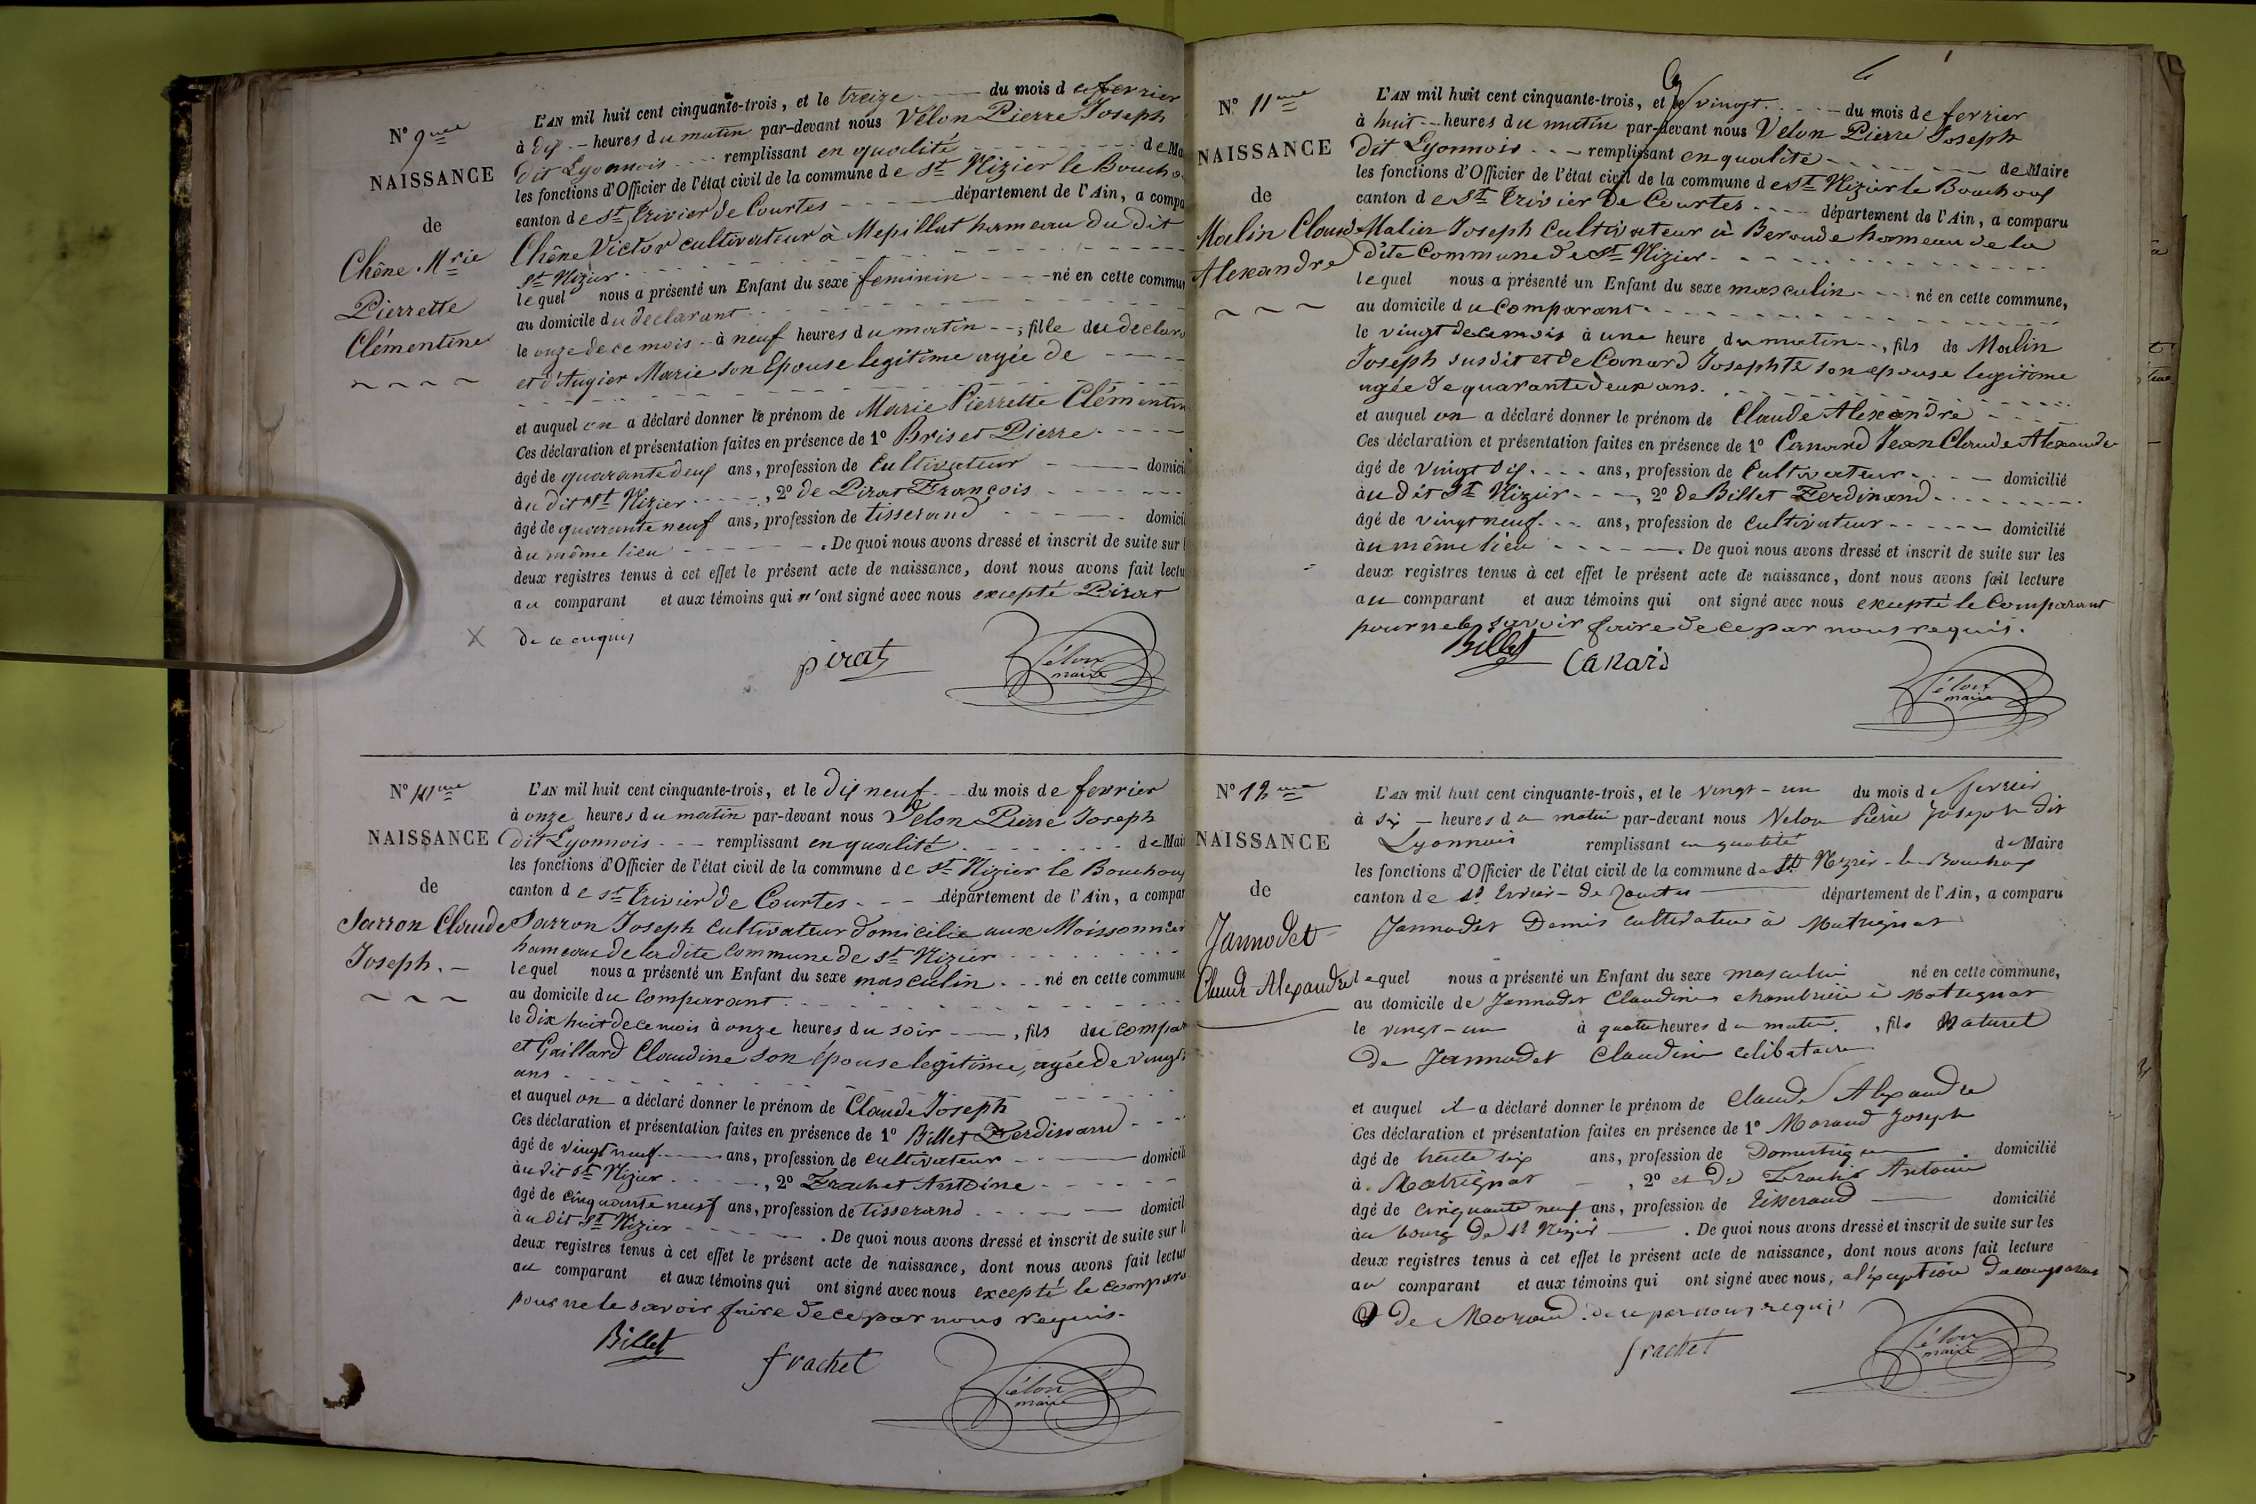 N° 9me
NAISSANCE
de
Chêne Mrie
Pierrette
Clémentine
L'AN mil huit cent cinquante-trois, et le treize du mois de fevrier
à dix heures du matin par-devant nous Vélon Pierre Joseph
dit Lyonnois remplissant en qualité de Ma
les fonctions d'Officier de l'état civil de la commune de St Nizier le Boucho
canton de St Trivier de Courtes département de l'Ain, a compa
Chêne Victor cultivateur à Mepillat hameau du dit
St Nizier
lequel nous a présenté un Enfant du sexe feminin né en cette commun
au domicile du déclarant
le onze de ce mois à neuf heures du matin, fille du declara
et d'Augier Marie son Epouse legitime agée de
et auquel on a déclaré donner le prénom de Marie Pierrette Clémentin
Ces déclaration et présentation faites en présence de 1° Briset Pierre
âgé de quarante deux ans, profession de Cultivateur domicil
à u dit St Nizier, 2° de Pirat François
âgé de quarante neuf ans, profession de tisserand domicil
à u même lieu. De quoi nous avons dressé et inscrit de suite sur l
deux registres tenus à cet effet le présent acte de naissance, dont nous avons fait lectu
au comparant et aux témoins qui n'ont signé avec nous excepté Pirat
de ce enquis
pirat
Vélon
maire
N° 10me
NAISSANCE
de
Sarron Claude
Joseph.
L'AN mil huit cent cinquante-trois, et le dix neuf du mois de fevrier
à onze heures du matin par-devant nous Velon Pierre Joseph
dit Lyonnois remplissant en qualité de Mair
les fonctions d'Officier de l'état civil de la commune de St Nizier le Bouchoux
canton de St Trivier de Courtes département de l'Ain, a compar
Sarron Joseph cultivateur domicilie aux Moissonnier
hameau de la dite Commune de St Nizier
lequel nous a présenté un Enfant du sexe masculin né en cette commune
au domicile du comparant
le dix huit de ce mois à onze heures du soir, fils du compar
et Gaillard Claudine son épouse legitime, agée de vingt
ans
et auquel on a déclaré donner le prénom de Claude Joseph
Ces déclaration et présentation faites en présence de 1° Billet Ferdinand
âgé de vingt neuf ans, profession de cultivateur domicili
à u dit St Nizier, 2° Frachet Antoine
âgé de cinquante neuf ans, profession de tisserand domicil
à u dit St Nizier. De quoi nous avons dressé et inscrit de suite sur l
deux registres tenus à cet effet le présent acte de naissance, dont nous avons fait lectur
au comparant et aux témoins qui ont signé avec nous excepté le compara
pour ne le savoir faire de ce par nous requis.
Billet
frachet
Vélon
maire
N° 11me
NAISSANCE
de
Malin Claude
Alexandre
L'AN mil huit cent cinquante-trois, et le vingt du mois de fevrier
à huit heures du matin par-devant nous Velon Pierre Joseph
dit Lyonnois remplissant en qualité de Maire
les fonctions d'Officier de l'état civil de la commune de St Nizier le Bouchoux
canton de St Trivier de Courtes département de l'Ain, a comparu
Malin Joseph Cultivateur à Beroude hameau de la
dite Commune de St Nizier
lequel nous a présenté un Enfant du sexe masculin né en cette commune,
au domicile du comparant
le vingt de ce mois à une heure du matin, fils de Malin
Joseph susdit et de Canard Josephte son epouse legitime
agée de quarante deux ans.
et auquel on a déclaré donner le prénom de Claude Alexandre
Ces déclaration et présentation faites en présence de 1° Canard Jean Claude Alexandre
âgé de vingt dix ans, profession de Cultivateur domicilié
à u dit St Nizier, 2° de Billet Ferdinand
âgé de vingt neuf ans, profession de cultivateur domicilié
à u même lieu. De quoi nous avons dressé et inscrit de suite sur les
deux registres tenus à cet effet le présent acte de naissance, dont nous avons fait lecture
au comparant et aux témoins qui ont signé avec nous excepté le Comparant
pour ne le savoir faire de ce par nous requis.
Billet
Canard
Vélon
maire
N° 12me
NAISSANCE
de
Jannodet
Claude Alexandre
L'AN mil huit cent cinquante-trois, et le vingt-un du mois de fevrier
à six heures du matin par-devant nous Velon Pierre Joseph dit
Lyonnais remplissant en qualité de Maire
les fonctions d'Officier de l'état civil de la commune de St Nizier-le-Bouchoux
canton de St Trivier-de-Courtes département de l'Ain, a comparu
Jannodet Denis cultivateur à Matrignat
lequel nous a présenté un Enfant du sexe masculin né en cette commune,
au domicile de Jannodet Claudine chambrière à Matrignat
le vingt-un à quatre heures du matin, fils Naturel
de Jannodet Claudine celibataire
et auquel il a déclaré donner le prénom de Claude Alexandre
Ces déclaration et présentation faites en présence de 1° Morand Joseph
âgé de trente six ans, profession de Domestique domicilié
à Matrignat, 2° et de Frachet Antoine
âgé de cinquante neuf ans, profession de Tisserand domicilié
à u bourg de St Nizier. De quoi nous avons dressé et inscrit de suite sur les
deux registres tenus à cet effet le présent acte de naissance, dont nous avons fait lecture
au comparant et aux témoins qui ont signé avec nous, à l'exception du comparant
& de Morand de ce par nous requis
frachet
Vélon
maire